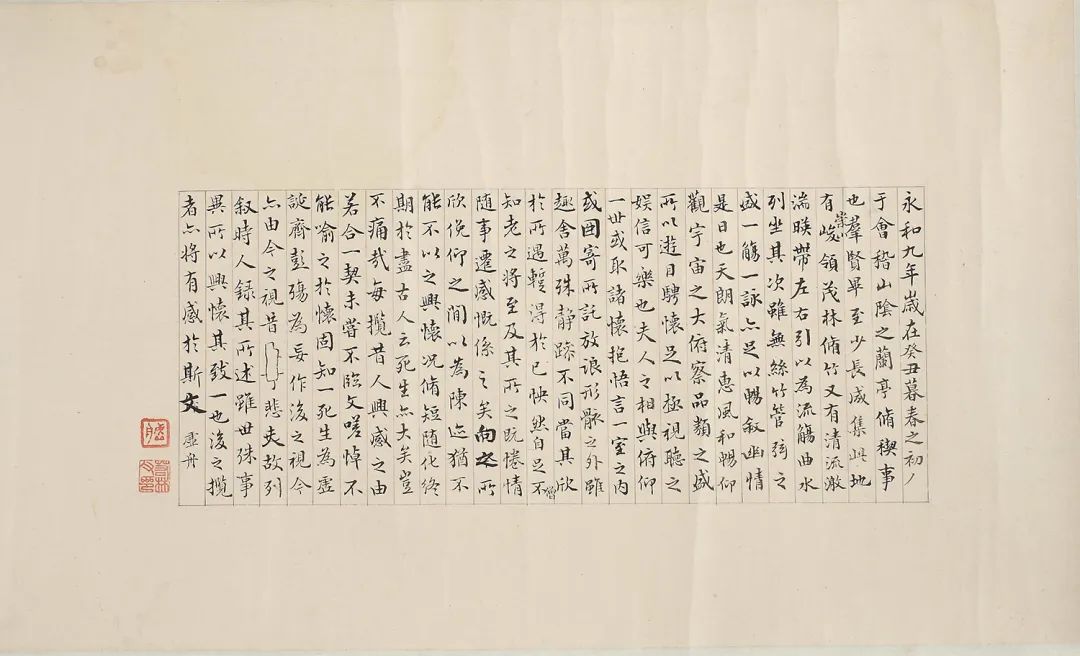 永和九年歲在癸丑暮春之初
于會稽山陰之蘭亭脩稧事
也羣賢畢至少長咸集此地
有崇山峻領茂林脩竹又有清流激
湍暎帶左右引以為流觴曲水
列坐其次雖無絲竹管弦之
盛一觴一詠亦足以暢叙幽情
是日也天朗氣清惠風和暢仰
觀宇宙之大俯察品類之盛
所以遊目騁懷足以極視聽之
娛信可樂也夫人之相與俯仰
一世或取諸懷抱悟言一室之內
或因寄所託放浪形骸之外雖
趣舍萬殊靜躁不同當其欣
於所遇蹔得於己怏然自足不
僧
知老之將至及其所之既惓情
隨事遷感慨係之矣向之所
欣俛仰之間以為陳迹猶不
能不以之興懷況脩短隨化終
期於盡古人云死生亦大矣豈
不痛哉每攬昔人興感之由
若合一契未嘗不臨文嗟悼不
能喻之於懷固知一死生為虛
誕齊彭殤為妄作後之視今
亦由今之視昔悲夫故列
叙時人錄其所述雖世殊事
異所以興懷其致一也後之攬
者亦將有感於斯文 虛舟